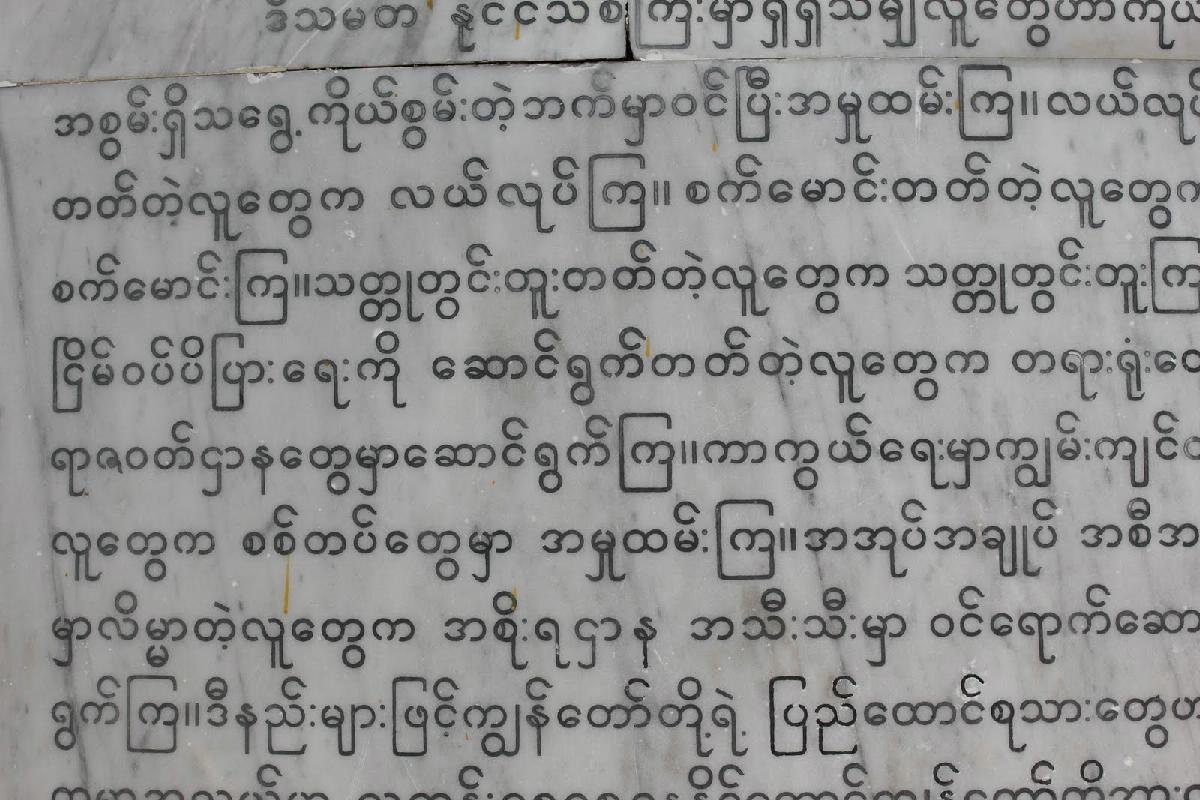 ဒီသမတ နိုင်ငံသစ် ကြီးမှာရှိရှိသမျှလူတွေဟာကိုယ်
အစွမ်းရှိသရွေ့ ကိုယ်စွမ်းတဲ့ဘက်မှာဝင်ပြီးအမှုထမ်းကြ။ လယ်လုပ်
တတ်တဲ့လူတွေက လယ်လုပ်ကြ။ စက်မောင်းတတ်တဲ့လူတွေက
စက်မောင်းကြ။သတ္တုတွင်းတူးတတ်တဲ့လူတွေက သတ္တုတွင်းတူးကြ
ငြိမ်ဝပ်ပိပြားရေးကို ဆောင်ရွက်တတ်တဲ့လူတွေက တရားရုံးတွေ
ရာဇဝတ်ဌာနတွေမှာဆောင်ရွက်ကြ။ကာကွယ်ရေးမှာကျွမ်းကျင်
လူတွေက စစ်တပ်တွေမှာ အမှုထမ်းကြ။အအုပ်အချုပ် အစီအ
မှာလိမ္မာတဲ့လူတွေက အစိုးရဌာန အသီးသီးမှာ ဝင်ရောက်ဆော
ရွက်ကြ။ဒီနည်းများဖြင့်ကျွန်တော်တို့ရဲ့ ပြည်ထောင်စုသားတွေဟ